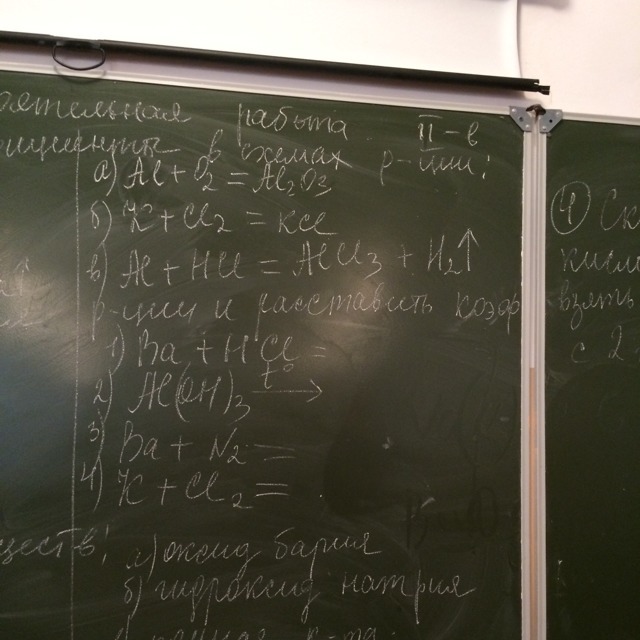 работа II-в
в схемах р-ции:
а) Al + O2 = Al2O3
б) K + Cl2 = KCl
в) Al + HCl = AlCl3 + H2↑
р-ции и расставить коэф
1) Ba + HCl =
2) Al(OH)3 t° →
3) Ba + N2 =
4) K + Cl2 =
а) оксид бария
б) гидроксид натрия
4
взять
с 2